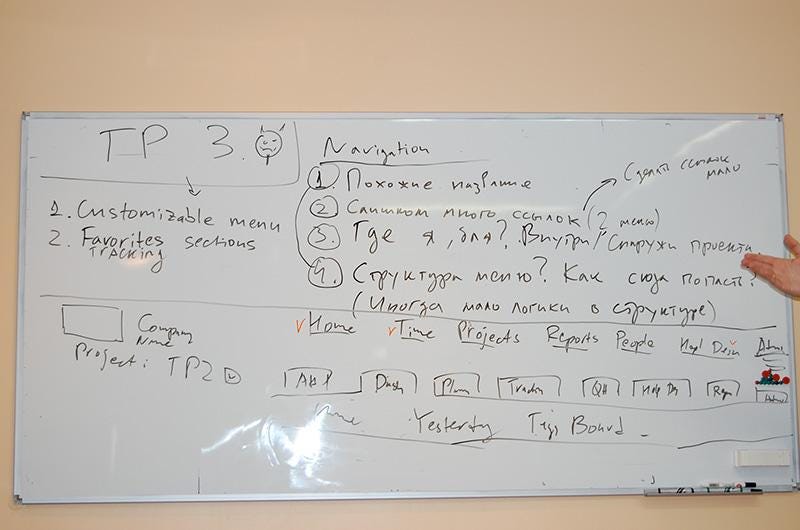 TP 3.
1. Customizable menu
2. Favorites sections
TRACKING
Navigation
1. Похожие название
2. Слишком много ссылок (2 меню)
Сделать ссылок мало
3. Где я, бля? Внутри/Снаружи проекта
4. Структура меню? Как сюда попасть?
(Иногда мало логики в структуре)
Company Name
Project: TP2
Home Time Projects Reports People Help Desk
Dash Plann QA Help De
Yesterday Board